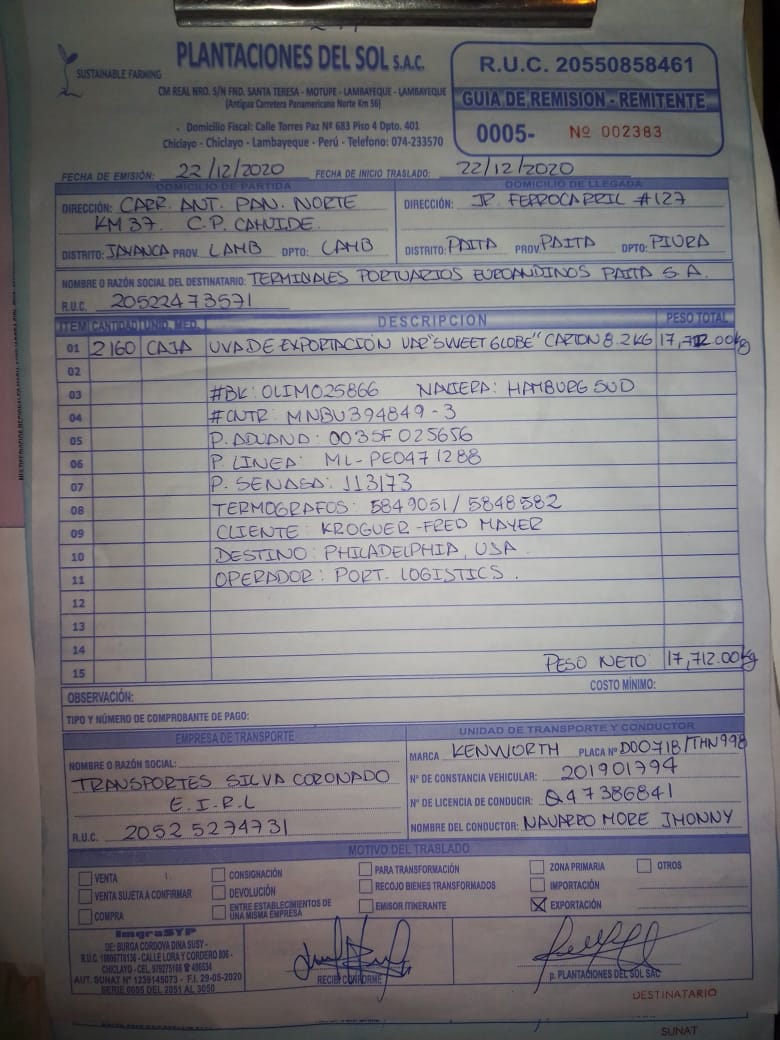 PLANTACIONES DEL SOL S.A.C.
SUSTAINABLE FARMING
CM REAL NRO. S/N FND. SANTA TERESA - MOTUPE - LAMBAYEQUE - LAMBAYEQUE
(Antigua Carretera Panamericana Norte Km 56)
Domicilio Fiscal: Calle Torres Paz Nº 683 Piso 4 Dpto. 401
Chiclayo - Chiclayo - Lambayeque - Perú - Telefono: 074-233570
R.U.C. 20550858461
GUIA DE REMISION - REMITENTE
0005- Nº 002383
FECHA DE EMISIÓN: 22/12/2020 FECHA DE INICIO TRASLADO: 22/12/2020
DOMICILIO DE PARTIDA
DIRECCIÓN: CARR. ANT. PAN. NORTE
KM 37. C.P. CAHUIDE.
DISTRITO: JAYANCA PROV. LAMB DPTO: LAMB
DOMICILIO DE LLEGADA
DIRECCIÓN: JR. FERROCARRIL #127
DISTRITO: PAITA PROV. PAITA DPTO: PIURA
NOMBRE O RAZÓN SOCIAL DEL DESTINATARIO: TERMINALES PORTUARIOS EUROANDINOS PAITA S.A.
R.U.C. 20522473571
ITEM CANTIDAD UNID. MED. DESCRIPCION PESO TOTAL
01 2160 CAJA UVA DE EXPORTACIÓN VAR "SWEET GLOBE" CARTON 8.2KG 17,712.00kg
02
03 #BK: OLIM025866 NAVIERA: HAMBURG SUD
04 #CNTR: MNBU394849-3
05 P. ADUANA: 0035F025656
06 P LINEA: ML-PE0471288
07 P. SENASA: 113173
08 TERMOGRAFOS: 5849051/5848582
09 CLIENTE: KROGUER-FRED MAYER
10 DESTINO: PHILADELPHIA, USA
11 OPERADOR: PORT. LOGISTICS.
12
13
14
15 PESO NETO: 17,712.00kg
OBSERVACIÓN: COSTO MÍNIMO:
TIPO Y NÚMERO DE COMPROBANTE DE PAGO:
EMPRESA DE TRANSPORTE
NOMBRE O RAZÓN SOCIAL:
TRANSPORTES SILVA CORONADO
E.I.R.L
R.U.C. 20525274731
UNIDAD DE TRANSPORTE Y CONDUCTOR
MARCA KENWORTH PLACA Nº D0O718/THN998
Nº DE CONSTANCIA VEHICULAR: 201901794
Nº DE LICENCIA DE CONDUCIR: Q47386841
NOMBRE DEL CONDUCTOR: NAVARRO MORE JHONNY
MOTIVO DEL TRASLADO
VENTA
VENTA SUJETA A CONFIRMAR
COMPRA
CONSIGNACIÓN
DEVOLUCIÓN
ENTRE ESTABLECIMIENTOS DE
UNA MISMA EMPRESA
PARA TRANSFORMACIÓN
RECOJO BIENES TRANSFORMADOS
EMISOR ITINERANTE
ZONA PRIMARIA
IMPORTACIÓN
EXPORTACIÓN
OTROS
ImgraSYP
DE: BURGA CORDOVA DINA SUSY -
R.U.C. 10806778136 - CALLE LORA Y CORDERO 806 -
CHICLAYO - CEL. 979275168 496534
AUT. SUNAT Nº 1239145073 - F.I. 29-05-2020
SERIE 0005 DEL 2051 AL 3050
RECIBI CONFORME
p. PLANTACIONES DEL SOL SAC
DESTINATARIO
SUNAT